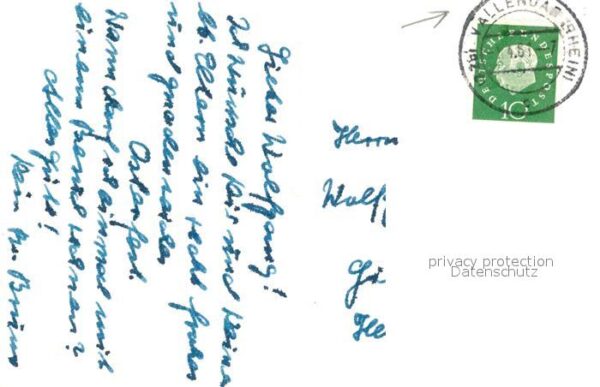 Lieber Wolfgang!
Ich wünsche Dir und Deinen
lb. Eltern ein recht frohes
und gnadenreiches
Osterfest.
Wann darf ich einmal mit
einem Besuch rechnen?
Alles Gute!
Dein
Herrn
Wolf
VALLENDAR (RHEIN)
DEUTSCHE BUNDESPOST
10
privacy protection
Datenschutz